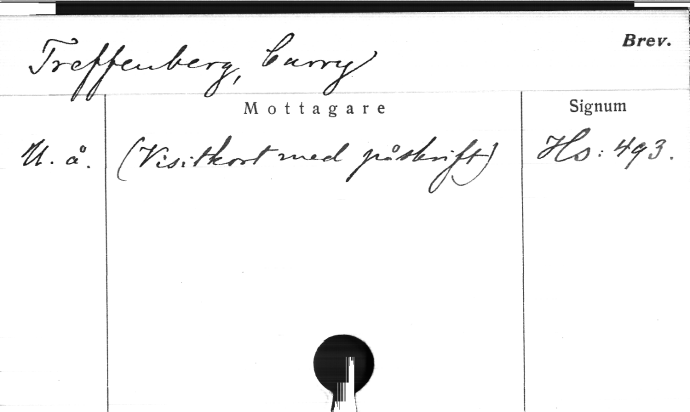 Treffenberg, Curry
Brev.
Mottagare
Signum
U. å.
(Visitkort med påskrift)
Hs: 493.